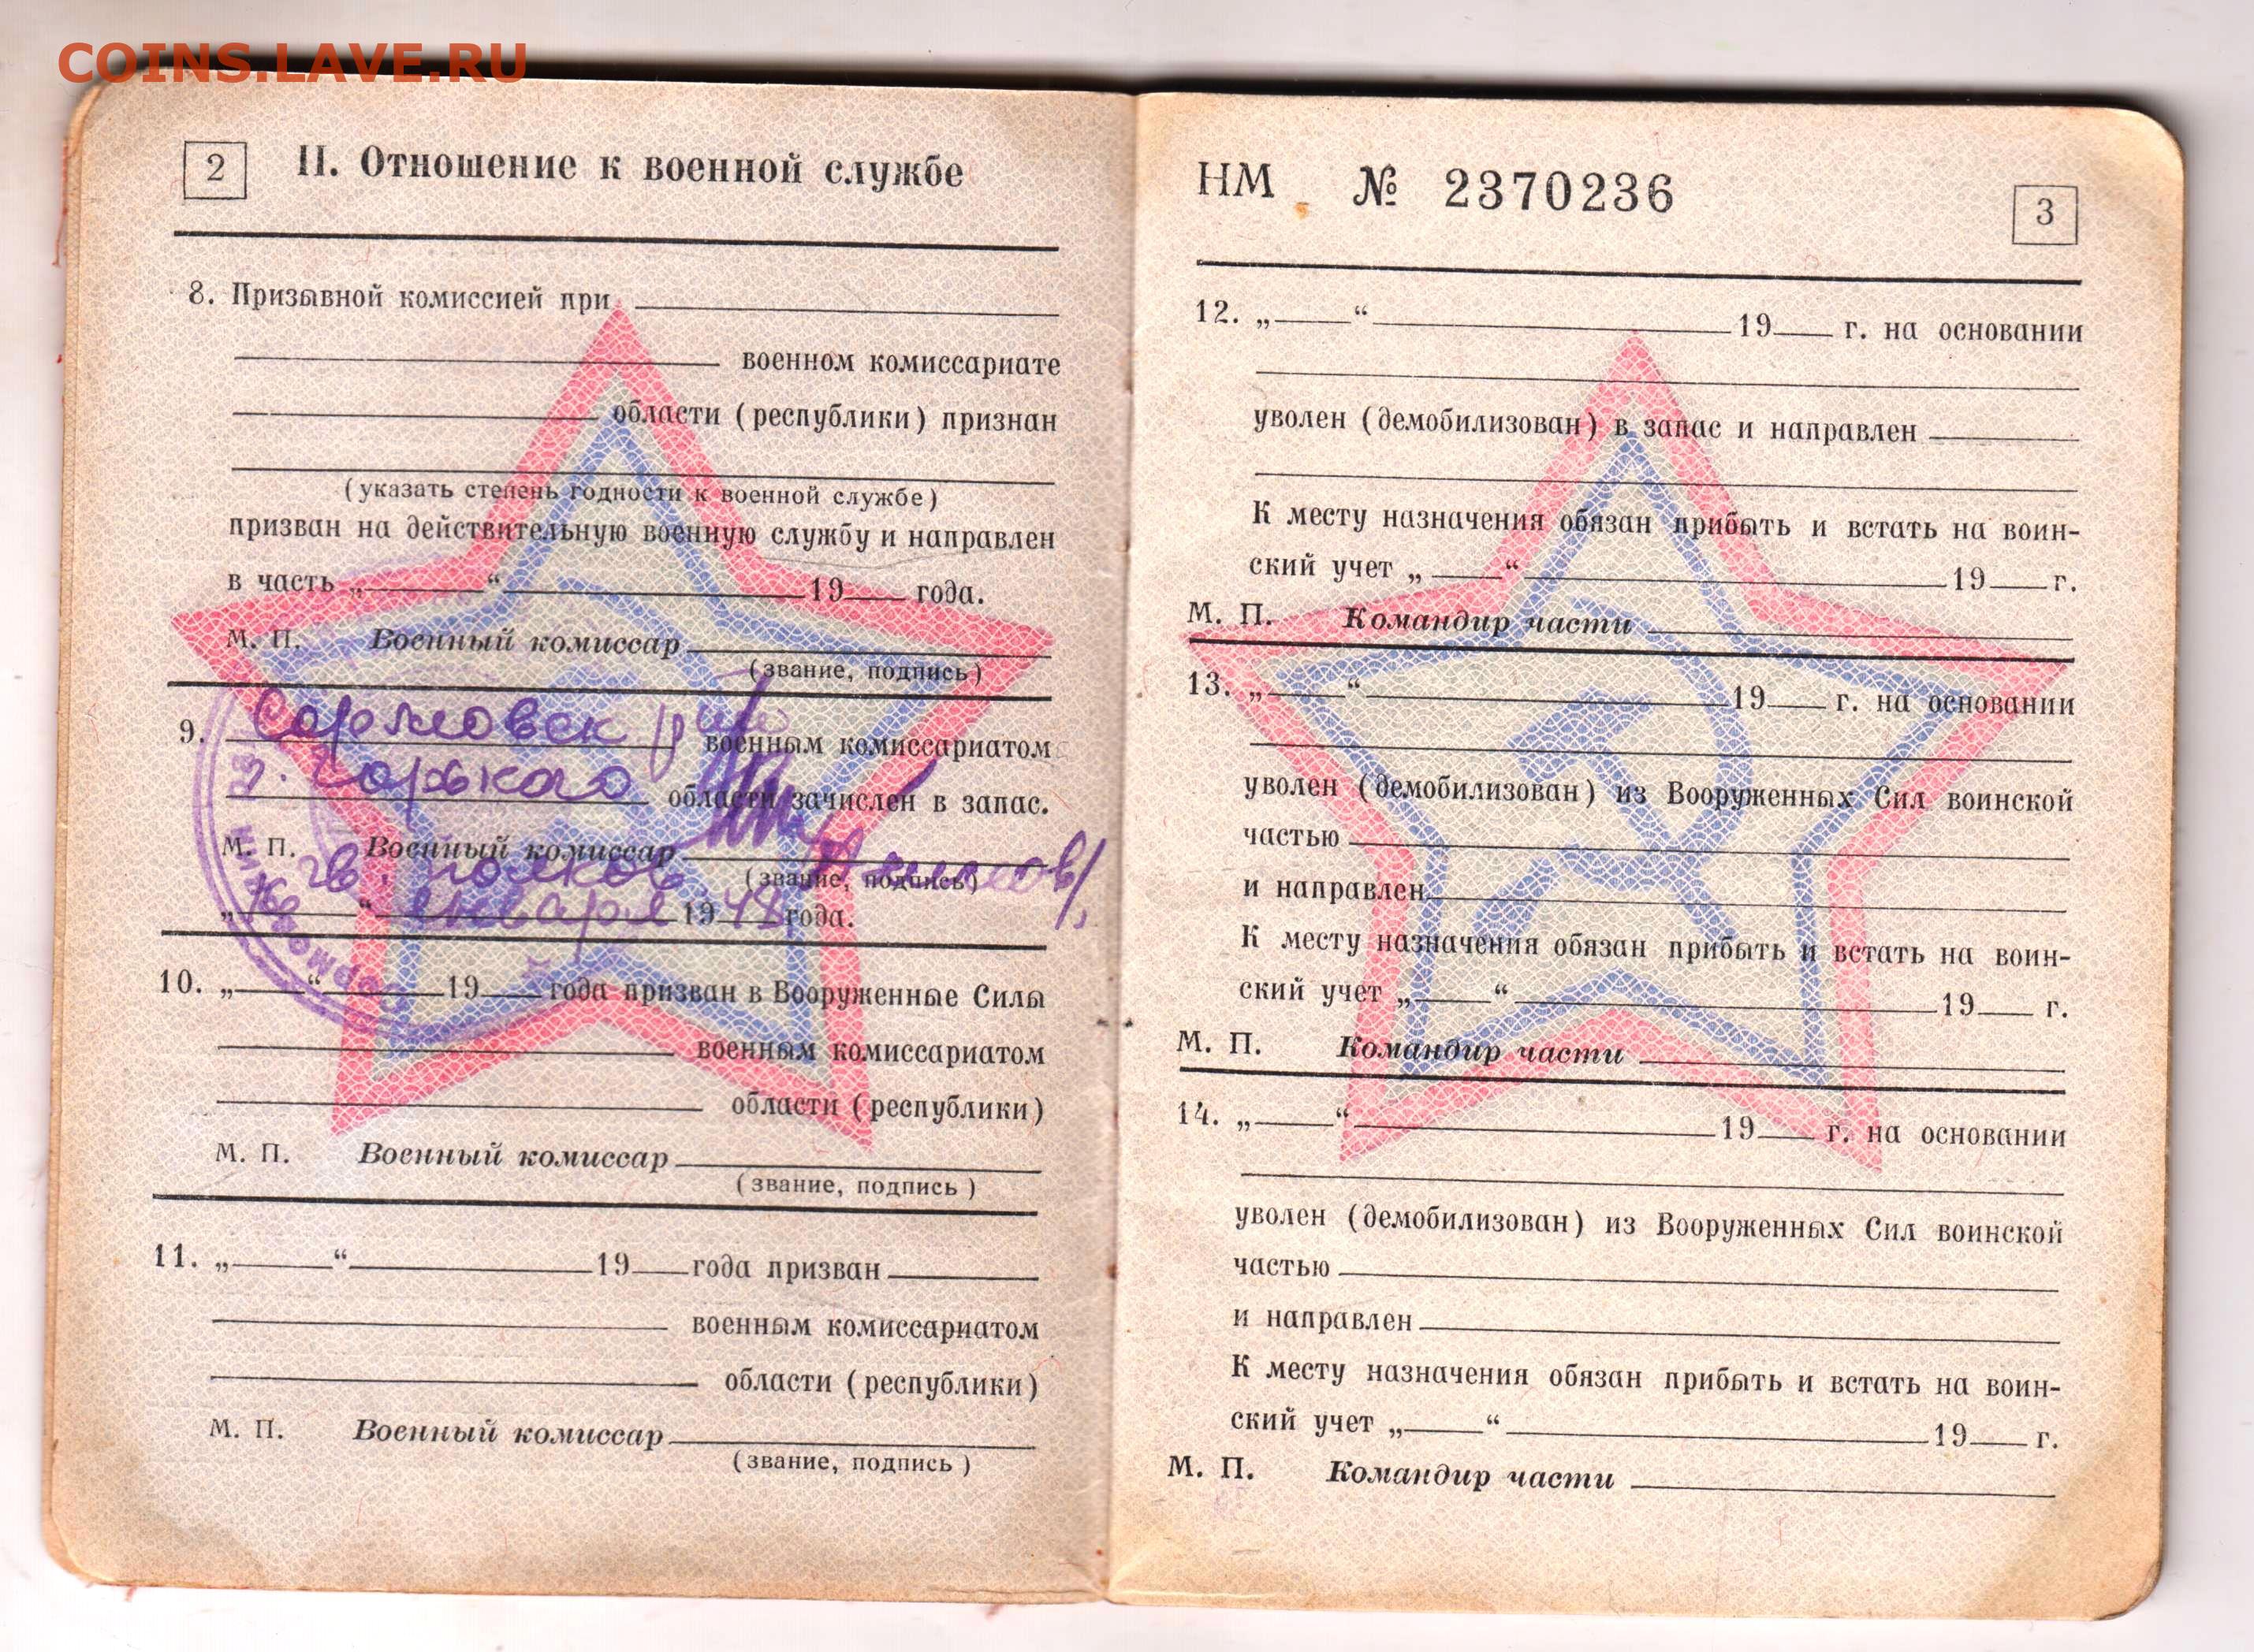 COINS.LAVE.RU
2
II. Отношение к военной службе
8. Призывной комиссией при
военном комиссариате
области (республики) признан
(указать степень годности к военной службе)
призван на действительную военную службу и направлен
в часть „ “ 19 года.
М. П. Военный комиссар
(звание, подпись)
9. Сормовск военным комиссариатом
г. Горького области зачислен в запас.
М. П. Военный комиссар
гв. полков. (звание, подпись)
„ “ января 19 48 года.
10. „ “ 19 года призван в Вооруженные Силы
военным комиссариатом
области (республики)
М. П. Военный комиссар
(звание, подпись)
11. „ “ 19 года призван
военным комиссариатом
области (республики)
М. П. Военный комиссар
(звание, подпись)
НМ № 2370236
3
12. „ “ 19 г. на основании
уволен (демобилизован) в запас и направлен
К месту назначения обязан прибыть и встать на воин-
ский учет „ “ 19 г.
М. П. Командир части
13. „ “ 19 г. на основании
уволен (демобилизован) из Вооруженных Сил воинской
частью
и направлен
К месту назначения обязан прибыть и встать на воин-
ский учет „ “ 19 г.
М. П. Командир части
14. „ “ 19 г. на основании
уволен (демобилизован) из Вооруженных Сил воинской
частью
и направлен
К месту назначения обязан прибыть и встать на воин-
ский учет „ “ 19 г.
М. П. Командир части